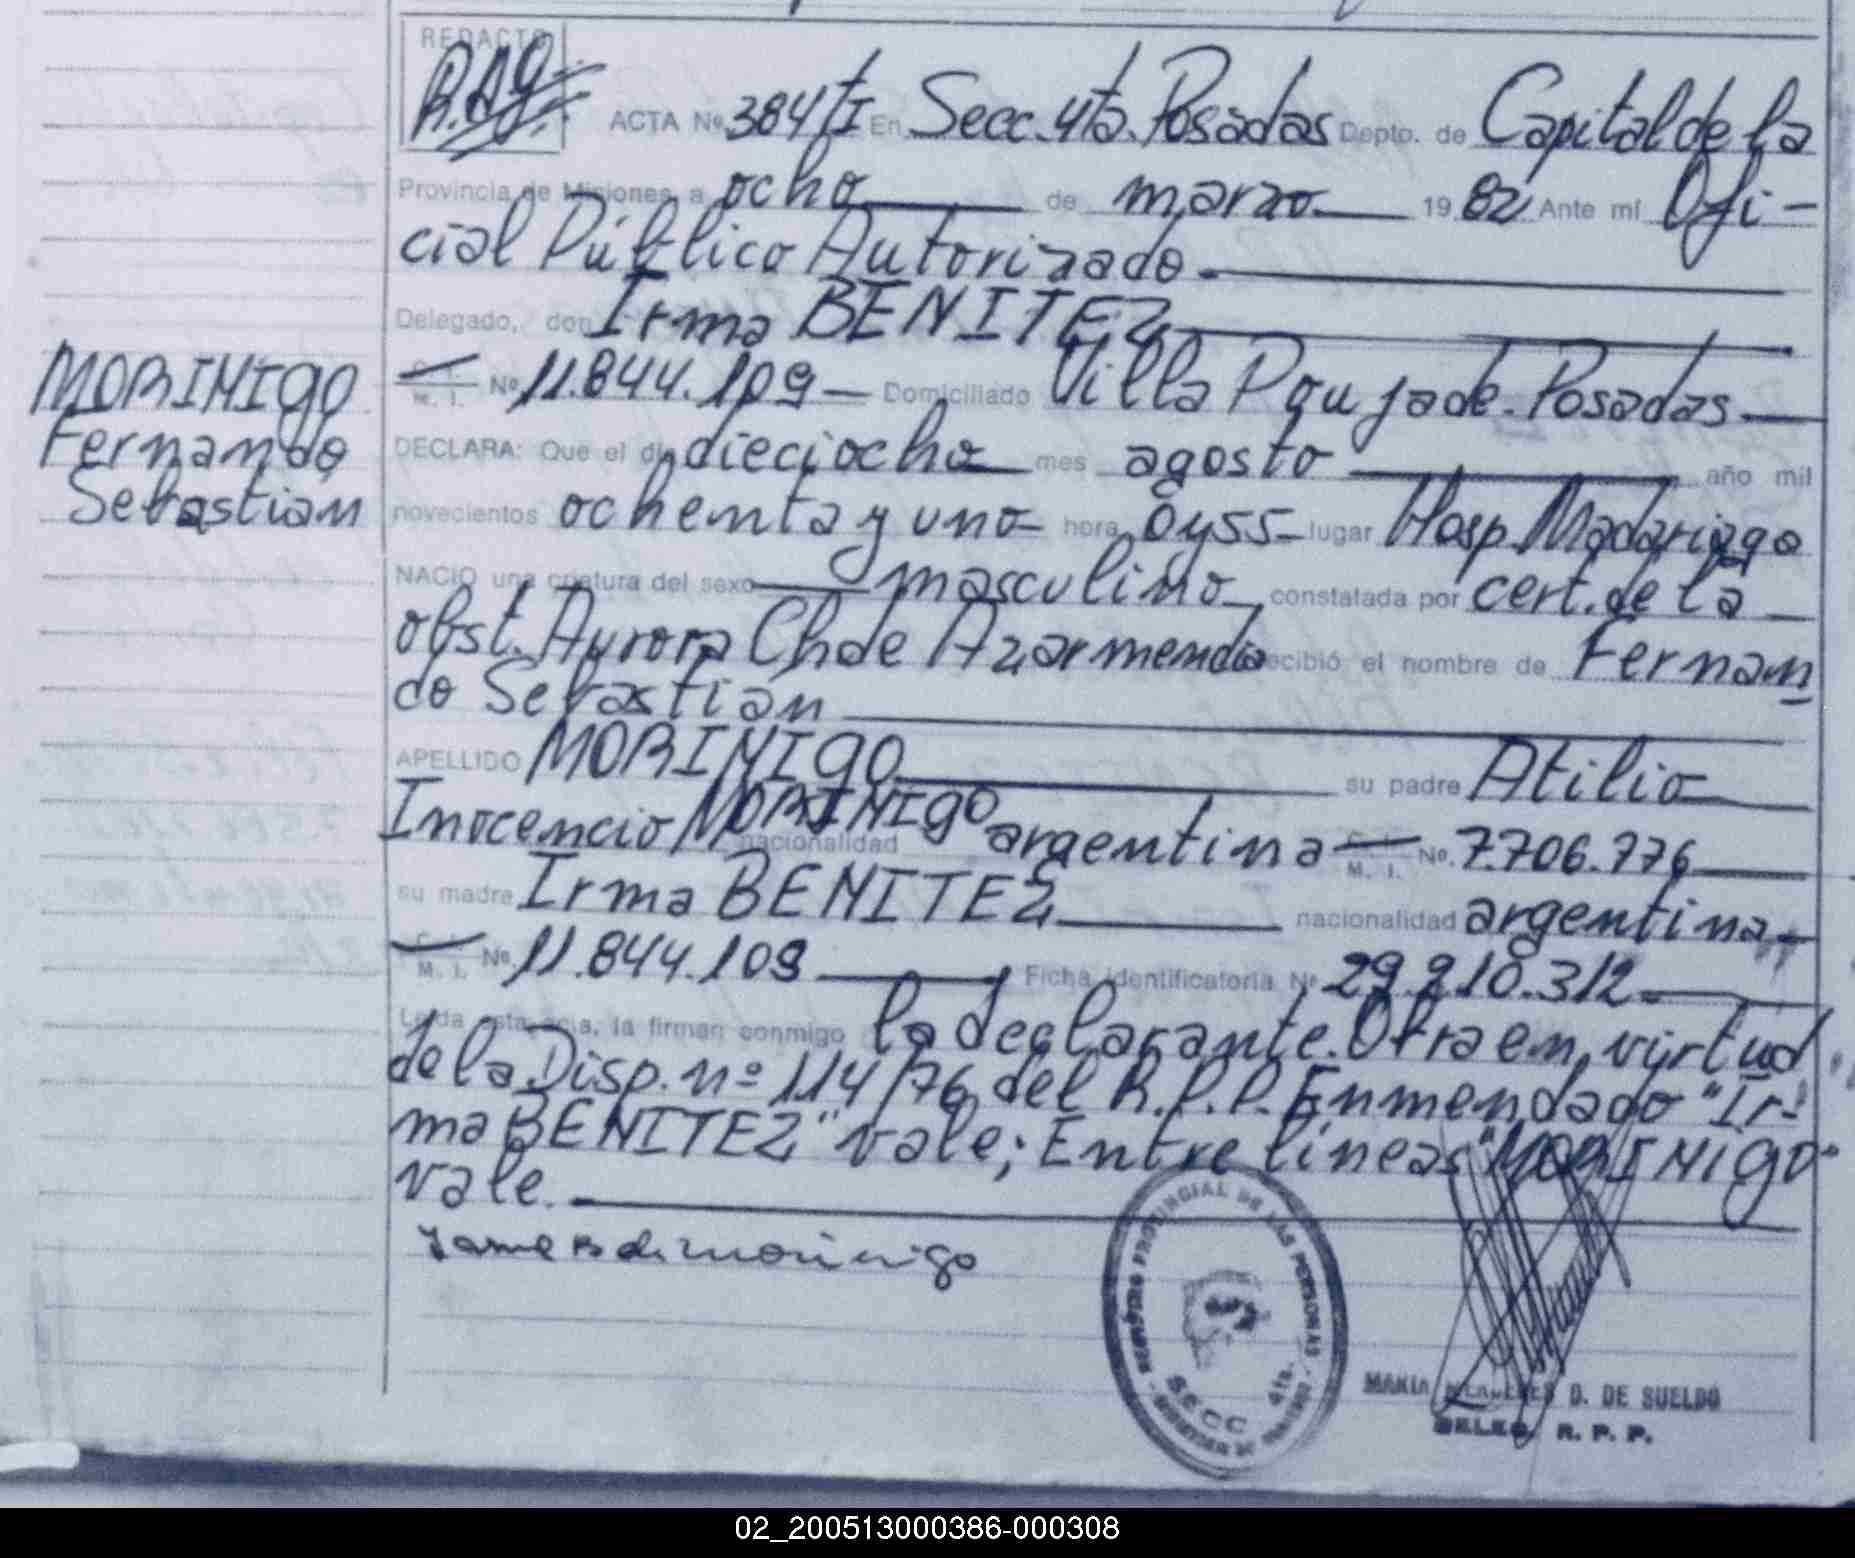 REDACTO
ACTA Nº 384 tI En Secc. 4ta. Posadas Depto. de Capital de la
Provincia de Misiones, a ocho de marzo 19 82 Ante mí Ofi-
cial Público Autorizado.
Delegado, don Irma BENITEZ
M. I. Nº 11.844.109 Domiciliado Villa Poujade. Posadas
MORINIGO
Fernando
Sebastian
DECLARA: Que el día dieciocho mes agosto año mil
novecientos ochenta y uno hora 0y55 lugar Hosp. Madariaga
NACIO una criatura del sexo masculino, constatada por cert. de la
obst. Aurora Ch de Azarmendia recibió el nombre de Fernan
do Sebastian
APELLIDO MORINIGO su padre Atilio
Inocencio MORINIGO nacionalidad argentina M. I. No. 7.706.776
su madre Irma BENITEZ nacionalidad argentina
M. I. Nº 11.844.109 Ficha identificatoria Nº 29.210.312
Leída esta acta, la firman conmigo la declarante. Otra en virtud
de la Disp. nº 114/76 del R.P.P. Enmendado "Ir-
ma BENITEZ" vale; Entre líneas "MORINIGO"
vale.
Irma B de Morinigo
REGISTRO PROVINCIAL DE LAS PERSONAS
SECC 4ta.
MARIA D. DE SUELDO
DELEG. R. P. P.
02_200513000386-000308